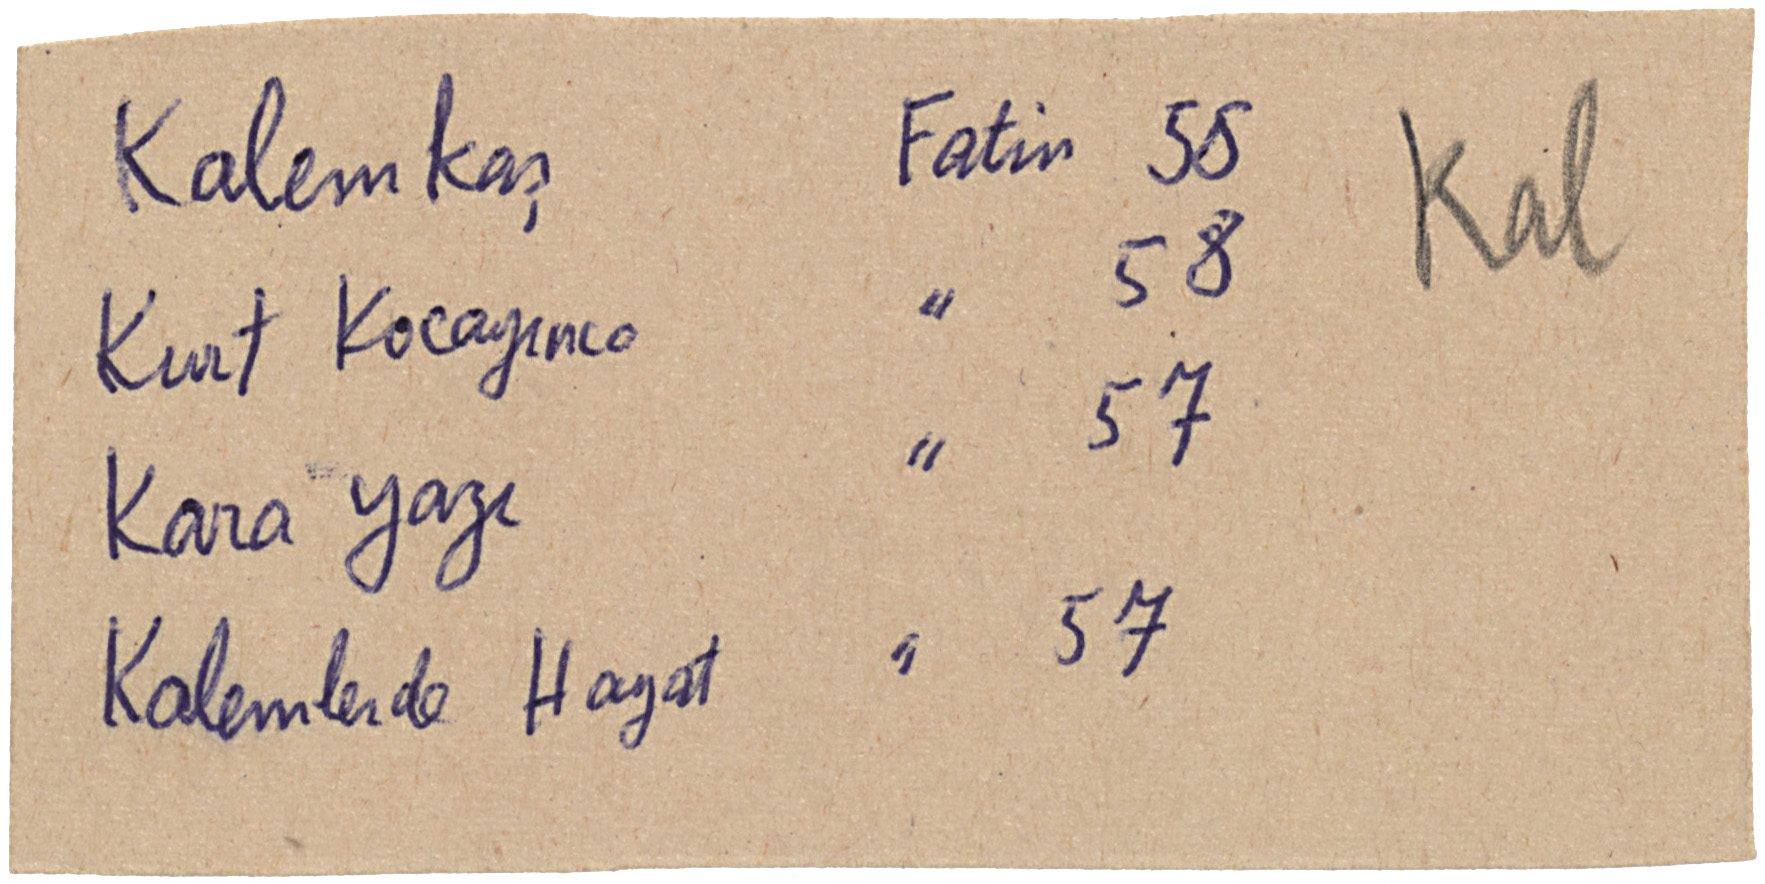 Kalemkaş Fatin 55 Kal
Kurt Kocayınca " 58
Kara yazı " 57
Kalemlerde Hayat " 57